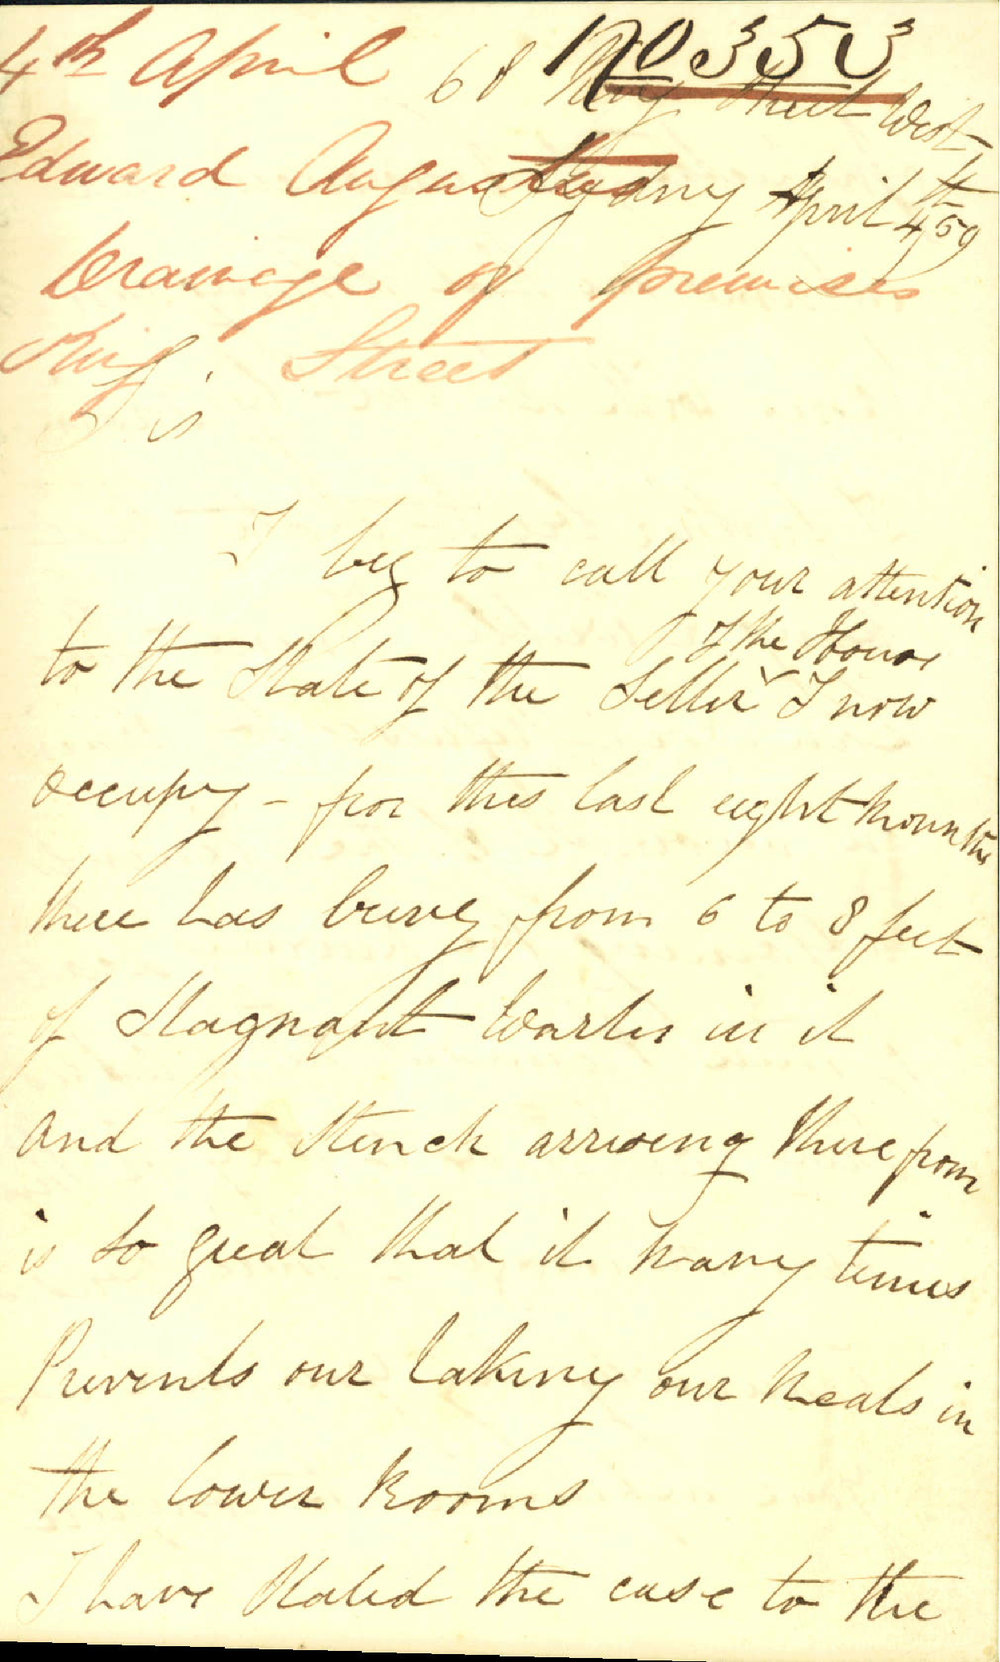 No 353
4th April
68 King Street West
Edward Augustus
Sydney April 4th 59
Drainage of premises
King Street
Sir
I beg to call your attention
of the House
to the State of the Seller I now
occupy - for this last eight Mounths
there has being from 6 to 8 feet
of Stagnant Warter in it
and the Stench arriseng there from
is so great that it many times
Prevents our taking our Meals in
the lower Rooms
I have Stated the case to the